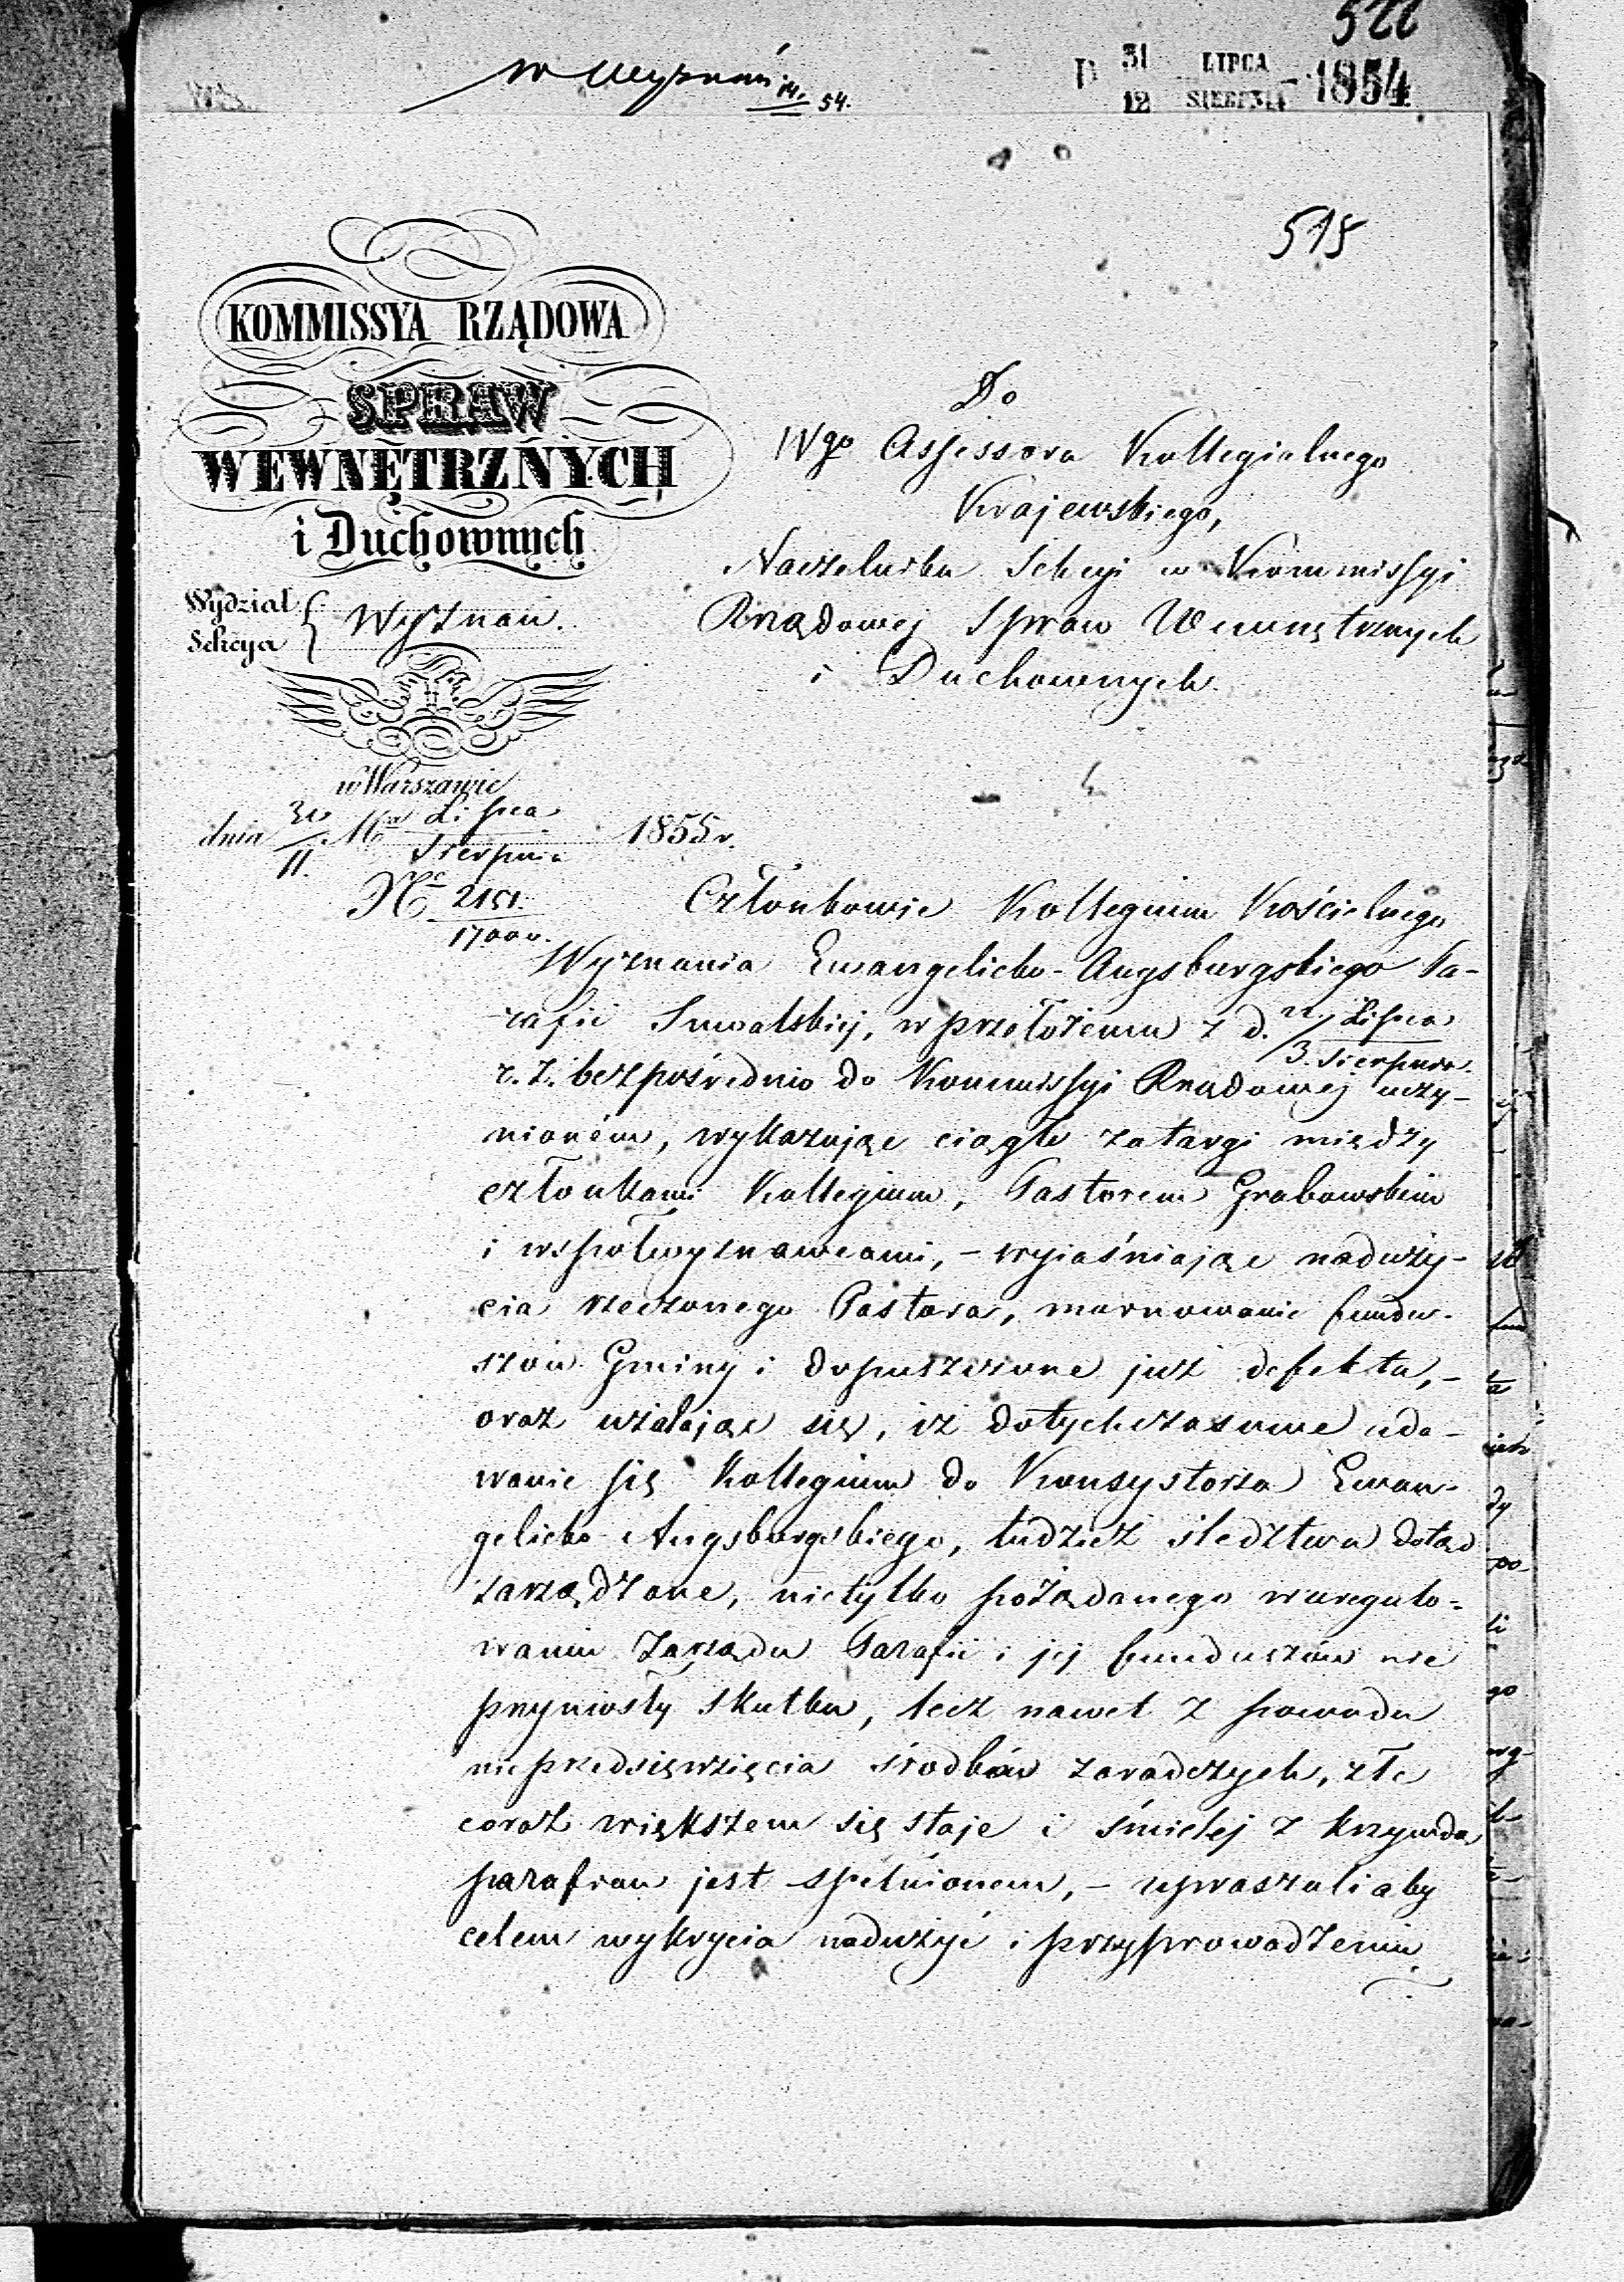 522
w Wyznań 14. 54.
31 LIPCA
12 SIERPNIA 1854
515
KOMMISSYA RZĄDOWA
SPRAW
WEWNĘTRZNYCH
i Duchownych
Wydział
Sekcya
Wyznań.
w Warszawie
dnia 30/11. Mca Lipca
Sierpnia 1855 r.
No 2151.
17000.
Do
Wgo Assessora Kollegialnego
Krajewskiego,
Naczelnika Sekcyi w Kommissyi
Rządowej Spraw Wewnętrznych
i Duchownych.
Członkowie Kollegium Kościelnego
Wyznania Ewangelicko-Augsburgskiego Pa-
rafii Suwalskiej, w przełożeniu z d. 22. Lipca
3. Sierpnia
r. z. bezpośrednio do Kommissyi Rządowej uczy-
nioném, wykazując ciągłe zatargi między
członkami Kollegium, Pastorem Grabowskim
i współwyznawcami, - wyjaśniając naduży-
cia rzeczonego Pastora, marnowanie fundu-
szów Gminy i dopuszczone już defekta, -
oraz użalając się, iż dotychczasowe uda-
wanie się Kollegium do Konsystorza Ewan-
gelicko Augsburgskiego, tudzież śledztwa dotąd
zarządzone, nietylko pożądanego w uregulo-
waniu Zarządu Parafii i jej funduszów nie
przyniosły skutku, lecz nawet z powodu
nieprzedsięwzięcia środków zaradczych, złe
coraz większem się staje i śmielej z krzywdą
parafian jest spełnionem, - upraszali aby
celem wykrycia nadużyć i przyprowadzenia